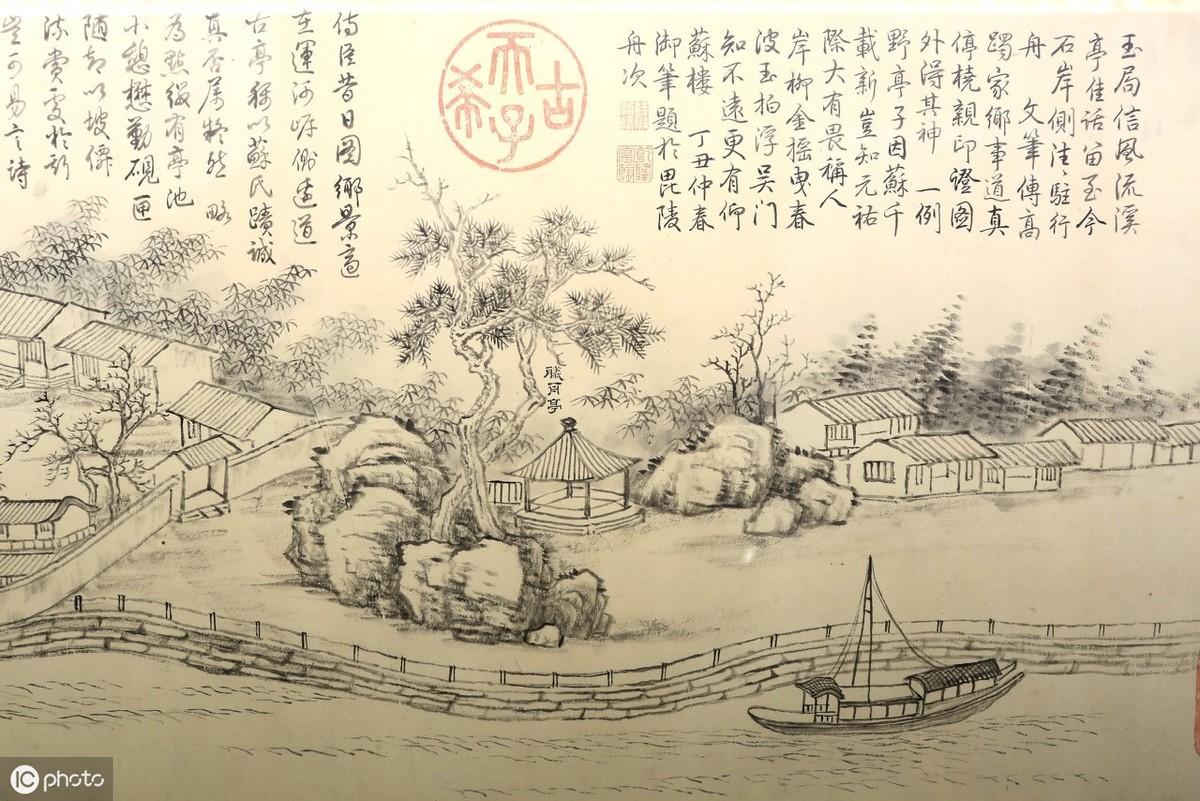 玉局信風流溪
亭佳話留至今
石岸側淮淮駐行
舟 文筆傳高
躅家鄉事道真
停橈親印證圖
外得其神 一例
野亭子因蘇千
載新豈知元祐
際大有畏稱人
岸柳金摇曳春
波玉拍浮吴门
知不遠更有仰
蘇樓 丁丑仲春
御筆題於毘陵
舟次
古希天子
侍臣昔日圖鄉景適
在運河岸側遺道
古亭猶以蘇氏蹟誠
真否屬疑然 略
為點綴有亭池
小憩懋勤硯匣
随却以坡僊
流賞更於新
豈可易言詩
艤舟亭
IC photo